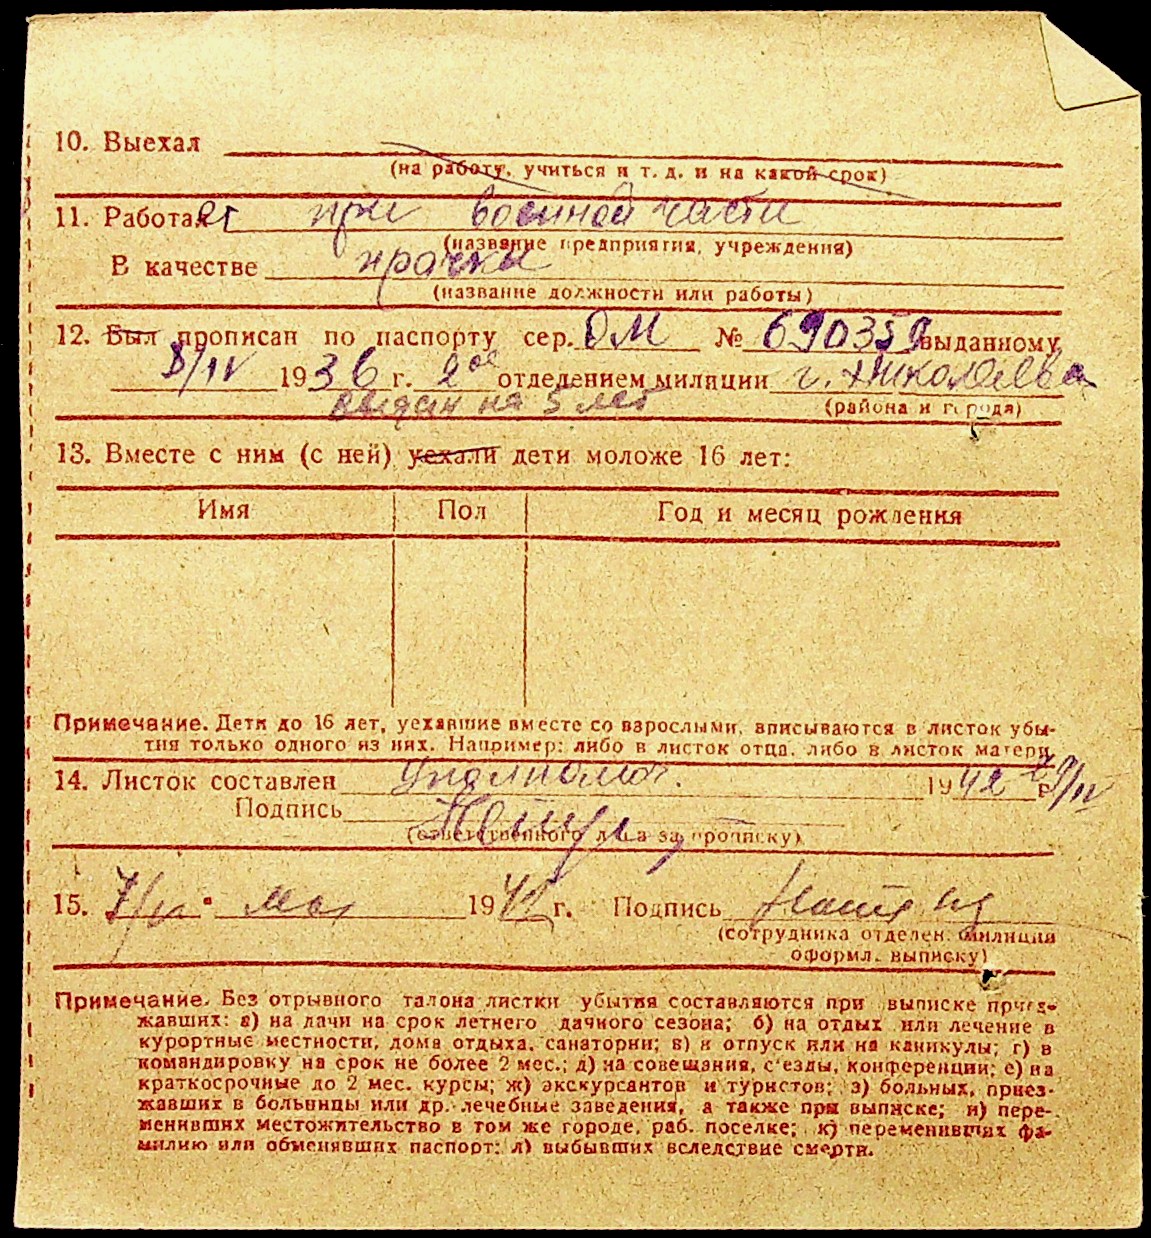 10. Выехал
(на работу, учиться и т. д. и на какой срок)
11. Работает при военной части
(название предприятия, учреждения)
В качестве прачки
(название должности или работы)
12. Был прописан по паспорту сер. ОМ № 690359 выданному
8/IV 1936 г. 2ое отделением милиции г. Николаева
выдан на 5 лет (района и города)
13. Вместе с ним (с ней) уехали дети моложе 16 лет:
Имя Пол Год и месяц рождения
Примечание. Дети до 16 лет, уехавшие вместе со взрослыми, вписываются в листок убы-
тия только одного из них. Например: либо в листок отца, либо в листок матери.
14. Листок составлен 1942 г.
Подпись
(ответственного лица за прописку)
15. мая 1942 г. Подпись
(сотрудника отделен. милиции
оформл. выписку)
Примечание. Без отрывного талона листки убытия составляются при выписке приез-
жавших: а) на дачи на срок летнего дачного сезона; б) на отдых или лечение в
курортные местности, дома отдыха, санатории; в) в отпуск или на каникулы; г) в
командировку на срок не более 2 мес.; д) на совещания, с'езды, конференции; е) на
краткосрочные до 2 мес. курсы; ж) экскурсантов и туристов; з) больных, приез-
жавших в больницы или др. лечебные заведения, а также при выписке; и) пере-
менивших местожительство в том же городе, раб. поселке; к) переменивших фа-
милию или обменявших паспорт; л) выбывших вследствие смерти.